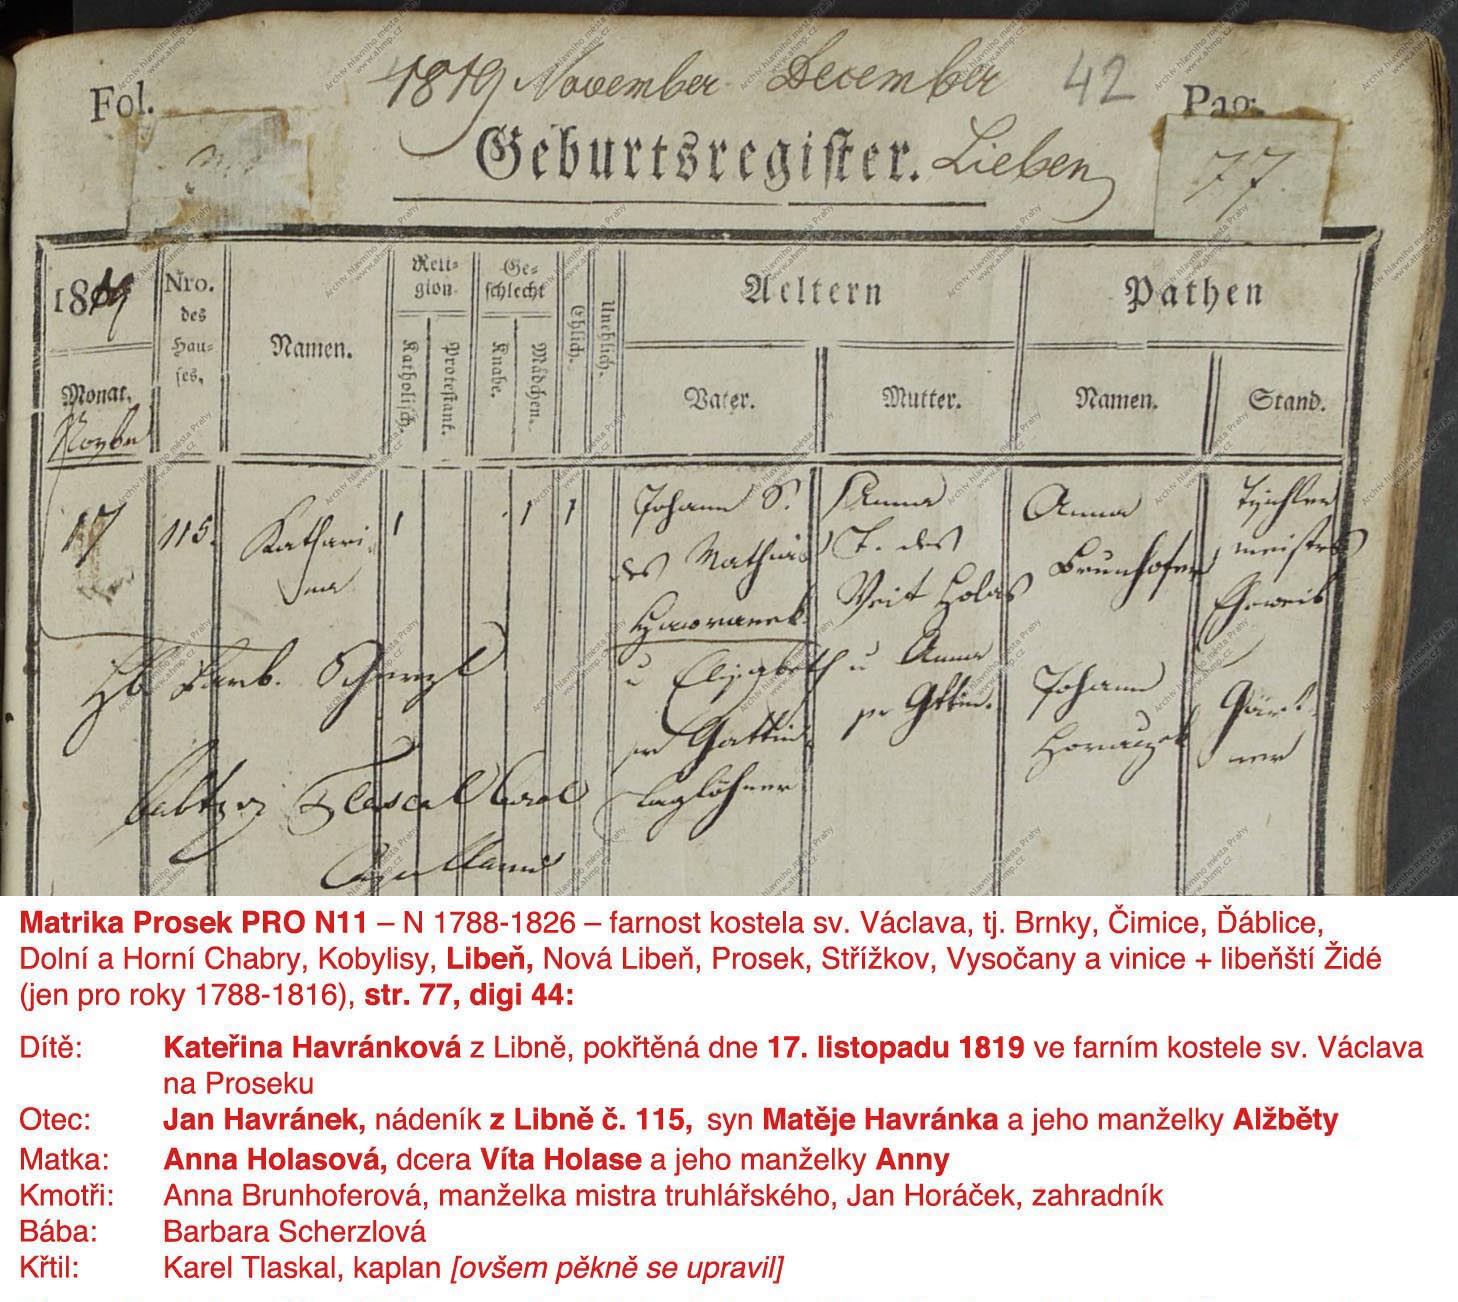 1819 November December 42
Fol. Pag.
Geburtsregister. Lieben
77
1819
Monat.
Novbr
Nro. des Hau- ses,
Namen.
Reli- gion
Katholisch.
Protestant.
Ge- schlecht
Knabe.
Mädchen.
Ehlich.
Unehlich.
Aeltern
Vater.
Mutter.
Pathen
Namen.
Stand.
17 115. Kathari
na
1 1 1
Johann S.
des Mathias
Hawranek
u Elisabeth
sr Gattin
Taglöhner
Anna
T. des
Veit Holas
u Anna
sr Gttin.
Anna
Brunhofer
Johann
Horaczek
Tischler
meisters
Eheweib
Gärt-
ner
Hb Barb. Scherzl
Tlascal Carol
Capellanus
Archiv hlavního města Prahy
www.ahmp.cz
Matrika Prosek PRO N11 – N 1788-1826 – farnost kostela sv. Václava, tj. Brnky, Čimice, Ďáblice,
Dolní a Horní Chabry, Kobylisy, Libeň, Nová Libeň, Prosek, Střížkov, Vysočany a vinice + libeňští Židé
(jen pro roky 1788-1816), str. 77, digi 44:
Dítě: Kateřina Havránková z Libně, pokřtěná dne 17. listopadu 1819 ve farním kostele sv. Václava
na Proseku
Otec: Jan Havránek, nádeník z Libně č. 115, syn Matěje Havránka a jeho manželky Alžběty
Matka: Anna Holasová, dcera Víta Holase a jeho manželky Anny
Kmotři: Anna Brunhoferová, manželka mistra truhlářského, Jan Horáček, zahradník
Bába: Barbara Scherzlová
Křtil: Karel Tlaskal, kaplan [ovšem pěkně se upravil]